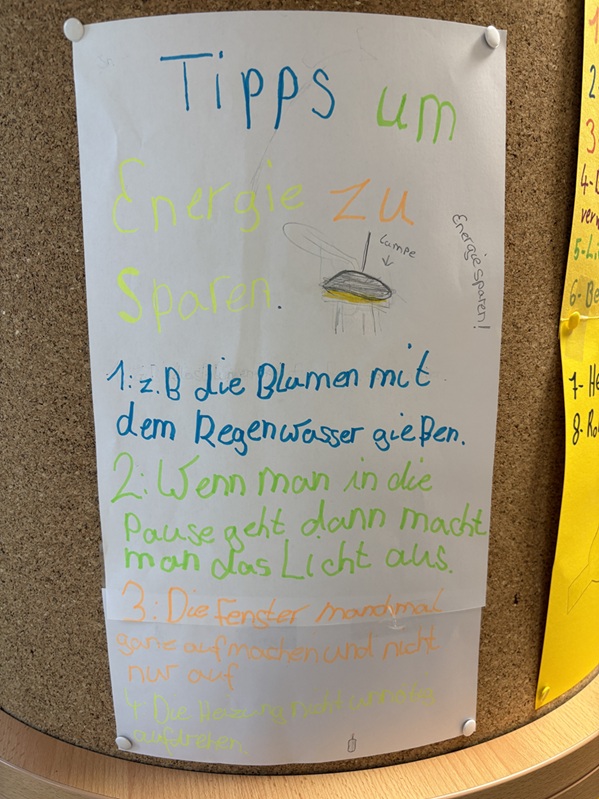 Tipps um
Energie zu
Sparen.
Lampe
Energie sparen!
1: z.B die Blumen mit
dem Regenwasser gießen.
2: Wenn man in die
Pause geht dann macht
man das Licht aus.
3: Die Fenster manchmal
ganz aufmachen und nicht
nur auf
4 Die Heizung nicht
aufdrehen.
1
2
3
4-
5-Li
6-Be
7-He
8-Ro